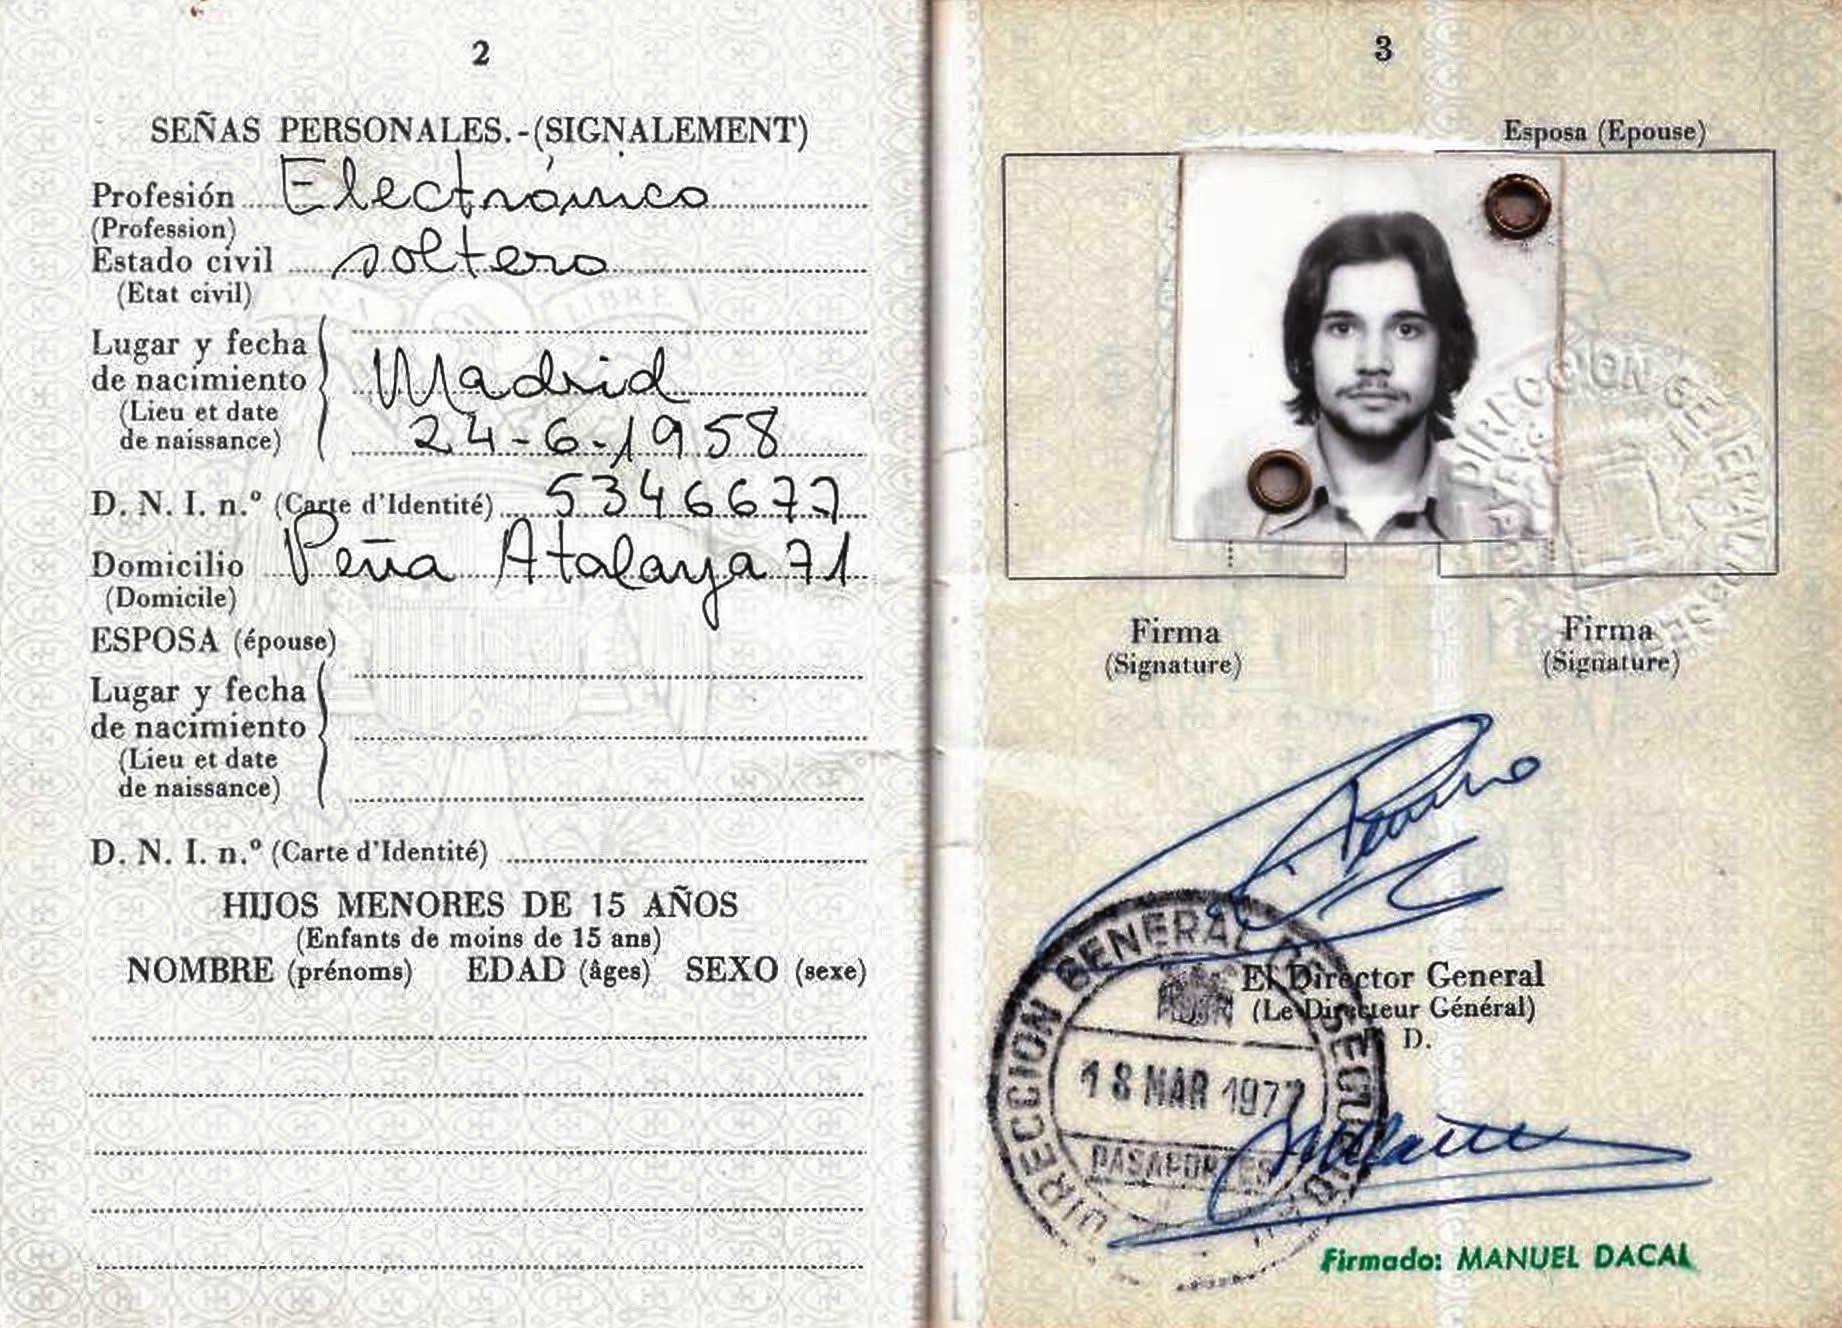 2
SEÑAS PERSONALES.-(SIGNALEMENT)
Profesión Electrónico
(Profession)
Estado civil soltero
(Etat civil)
Lugar y fecha
de nacimiento Madrid
(Lieu et date
de naissance) 24-6-1958
D. N. I. n.º (Carte d'Identité) 5346677
Domicilio Peña Atalaya 71
(Domicile)
ESPOSA (épouse)
Lugar y fecha
de nacimiento
(Lieu et date
de naissance)
D. N. I. n.º (Carte d'Identité)
HIJOS MENORES DE 15 AÑOS
(Enfants de moins de 15 ans)
NOMBRE (prénoms) EDAD (âges) SEXO (sexe)
3
Esposa (Epouse)
DIRECCION GENERAL DE
Firma Firma
(Signature) (Signature)
El Director General
(Le Directeur Général)
D.
DIRECCION GENERAL DE SEGURIDAD
18 MAR 1977
PASAPORTES
Firmado: MANUEL DACAL